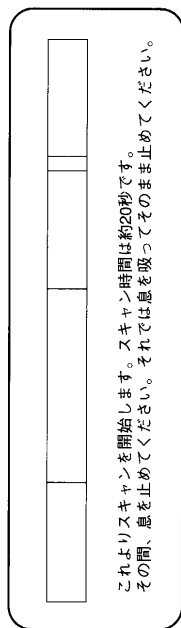 これよりスキャンを開始します。スキャン時間は約20秒です。
その間、息を止めてください。それでは息を吸ってそのまま止めてください。